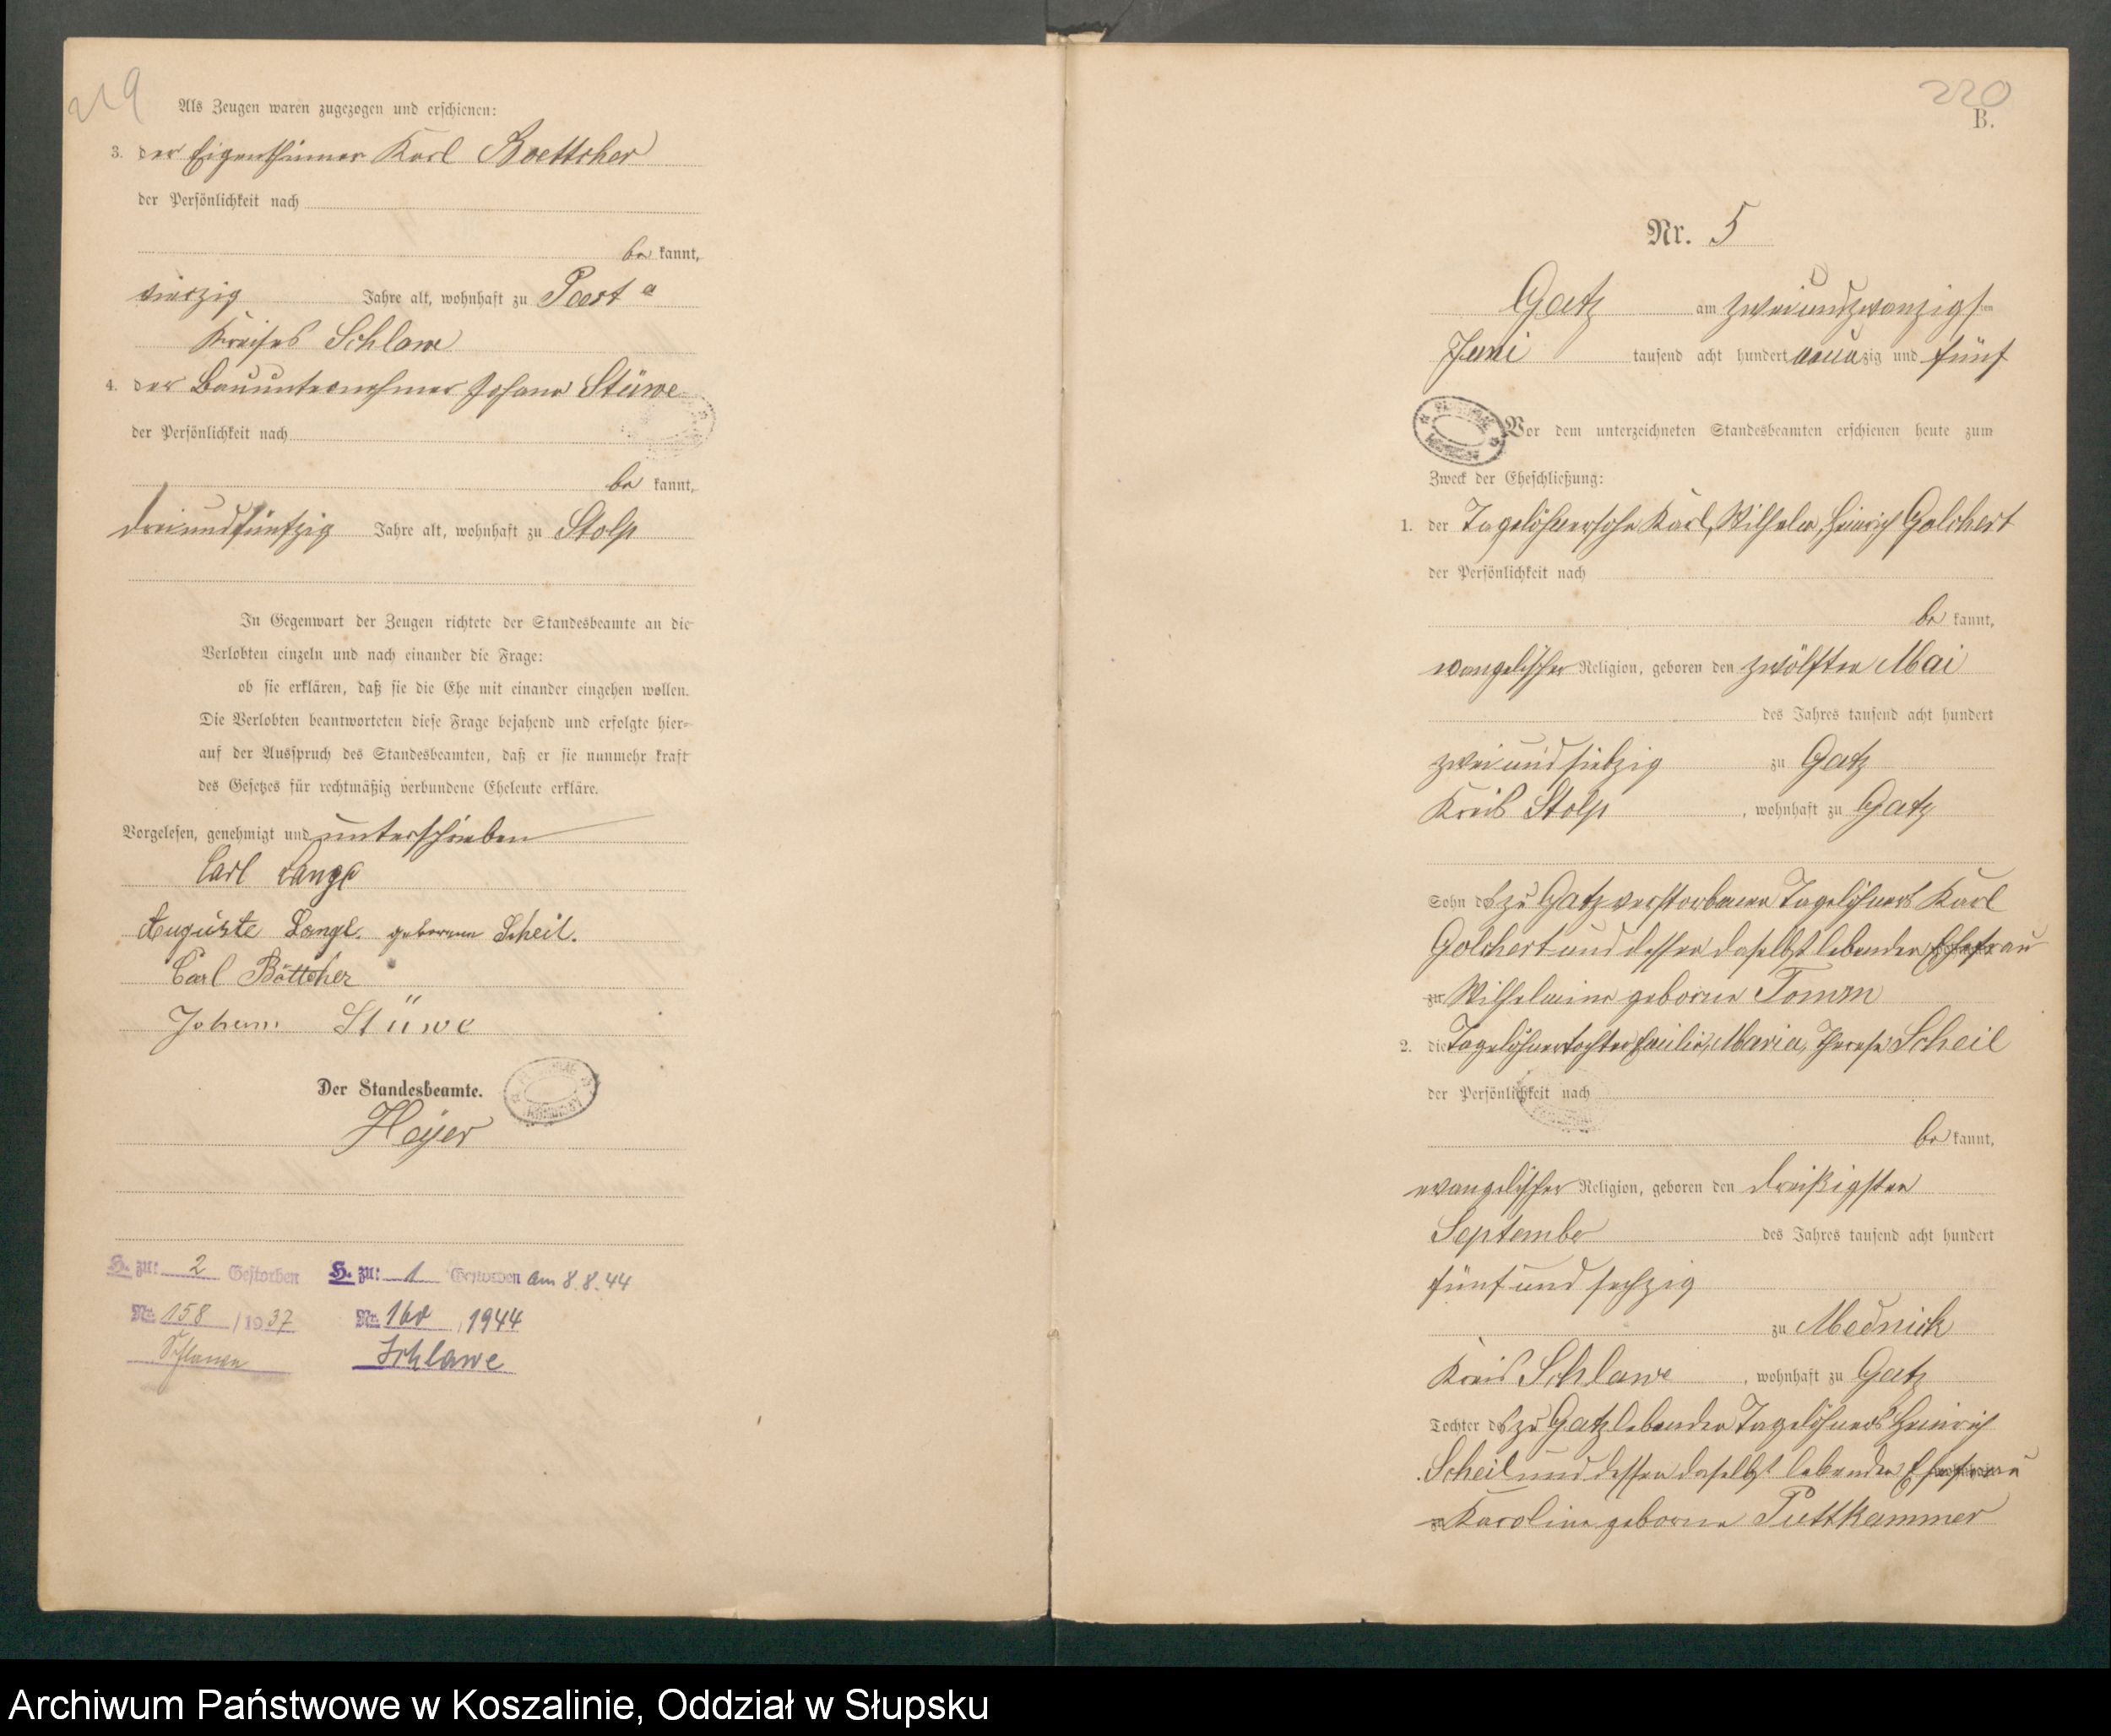 219
Als Zeugen waren zugezogen und erschienen:
3. der Eigenthümer Karl Boettcher
der Persönlichkeit nach
be kannt,
vierzig Jahre alt, wohnhaft zu Peest
Kreises Schlawe
4. der Bauunternehmer Johann Stüwe
der Persönlichkeit nach
be kannt,
dreiundfünfzig Jahre alt, wohnhaft zu Stolp
In Gegenwart der Zeugen richtete der Standesbeamte an die
Verlobten einzeln und nach einander die Frage:
ob sie erklären, daß sie die Ehe mit einander eingehen wollen.
Die Verlobten beantworteten diese Frage bejahend und erfolgte hier-
auf der Ausspruch des Standesbeamten, daß er sie nunmehr kraft
des Gesetzes für rechtmäßig verbundene Eheleute erkläre.
Vorgelesen, genehmigt und unterschrieben
Carl Lange
Auguste Lange geborene Scheil.
Carl Böttcher
Johann Stüwe
Der Standesbeamte.
Heyer
H. zu: 2 Gestorben H. zu: 1 Gestorben am 8.8.44
Nr. 158 / 1937 Nr. 160 / 1944
Schlawe Schlawe
220
B.
Nr. 5
Gatz am zweiundzwanzigsten
Juni tausend acht hundert neunzig und fünf
Vor dem unterzeichneten Standesbeamten erschienen heute zum
Zweck der Eheschließung:
1. der Tagelöhnersohn Karl, Wilhelm, Heinrich Golchert
der Persönlichkeit nach
be kannt,
evangelischer Religion, geboren den zwölften Mai
des Jahres tausend acht hundert
zweiundsiebzig zu Gatz
Kreis Stolp, wohnhaft zu Gatz
Sohn des zu Gatz verstorbenen Tagelöhners Karl
Golchert und dessen daselbst lebenden Ehefrau
zu Wilhelmine geborne Tomm
2. die Tagelöhnertochter Emilie, Maria, Therese Scheil
der Persönlichkeit nach
be kannt,
evangelischer Religion, geboren den dreißigsten
September des Jahres tausend acht hundert
fünf und sechzig
zu Mednick
Kreis Schlawe, wohnhaft zu Gatz
Tochter des zu Gatz lebenden Tagelöhners Heinrich
Scheil und dessen daselbst lebenden Ehefrau
zu Karoline geborne Puttkammer
Archiwum Państwowe w Koszalinie, Oddział w Słupsku